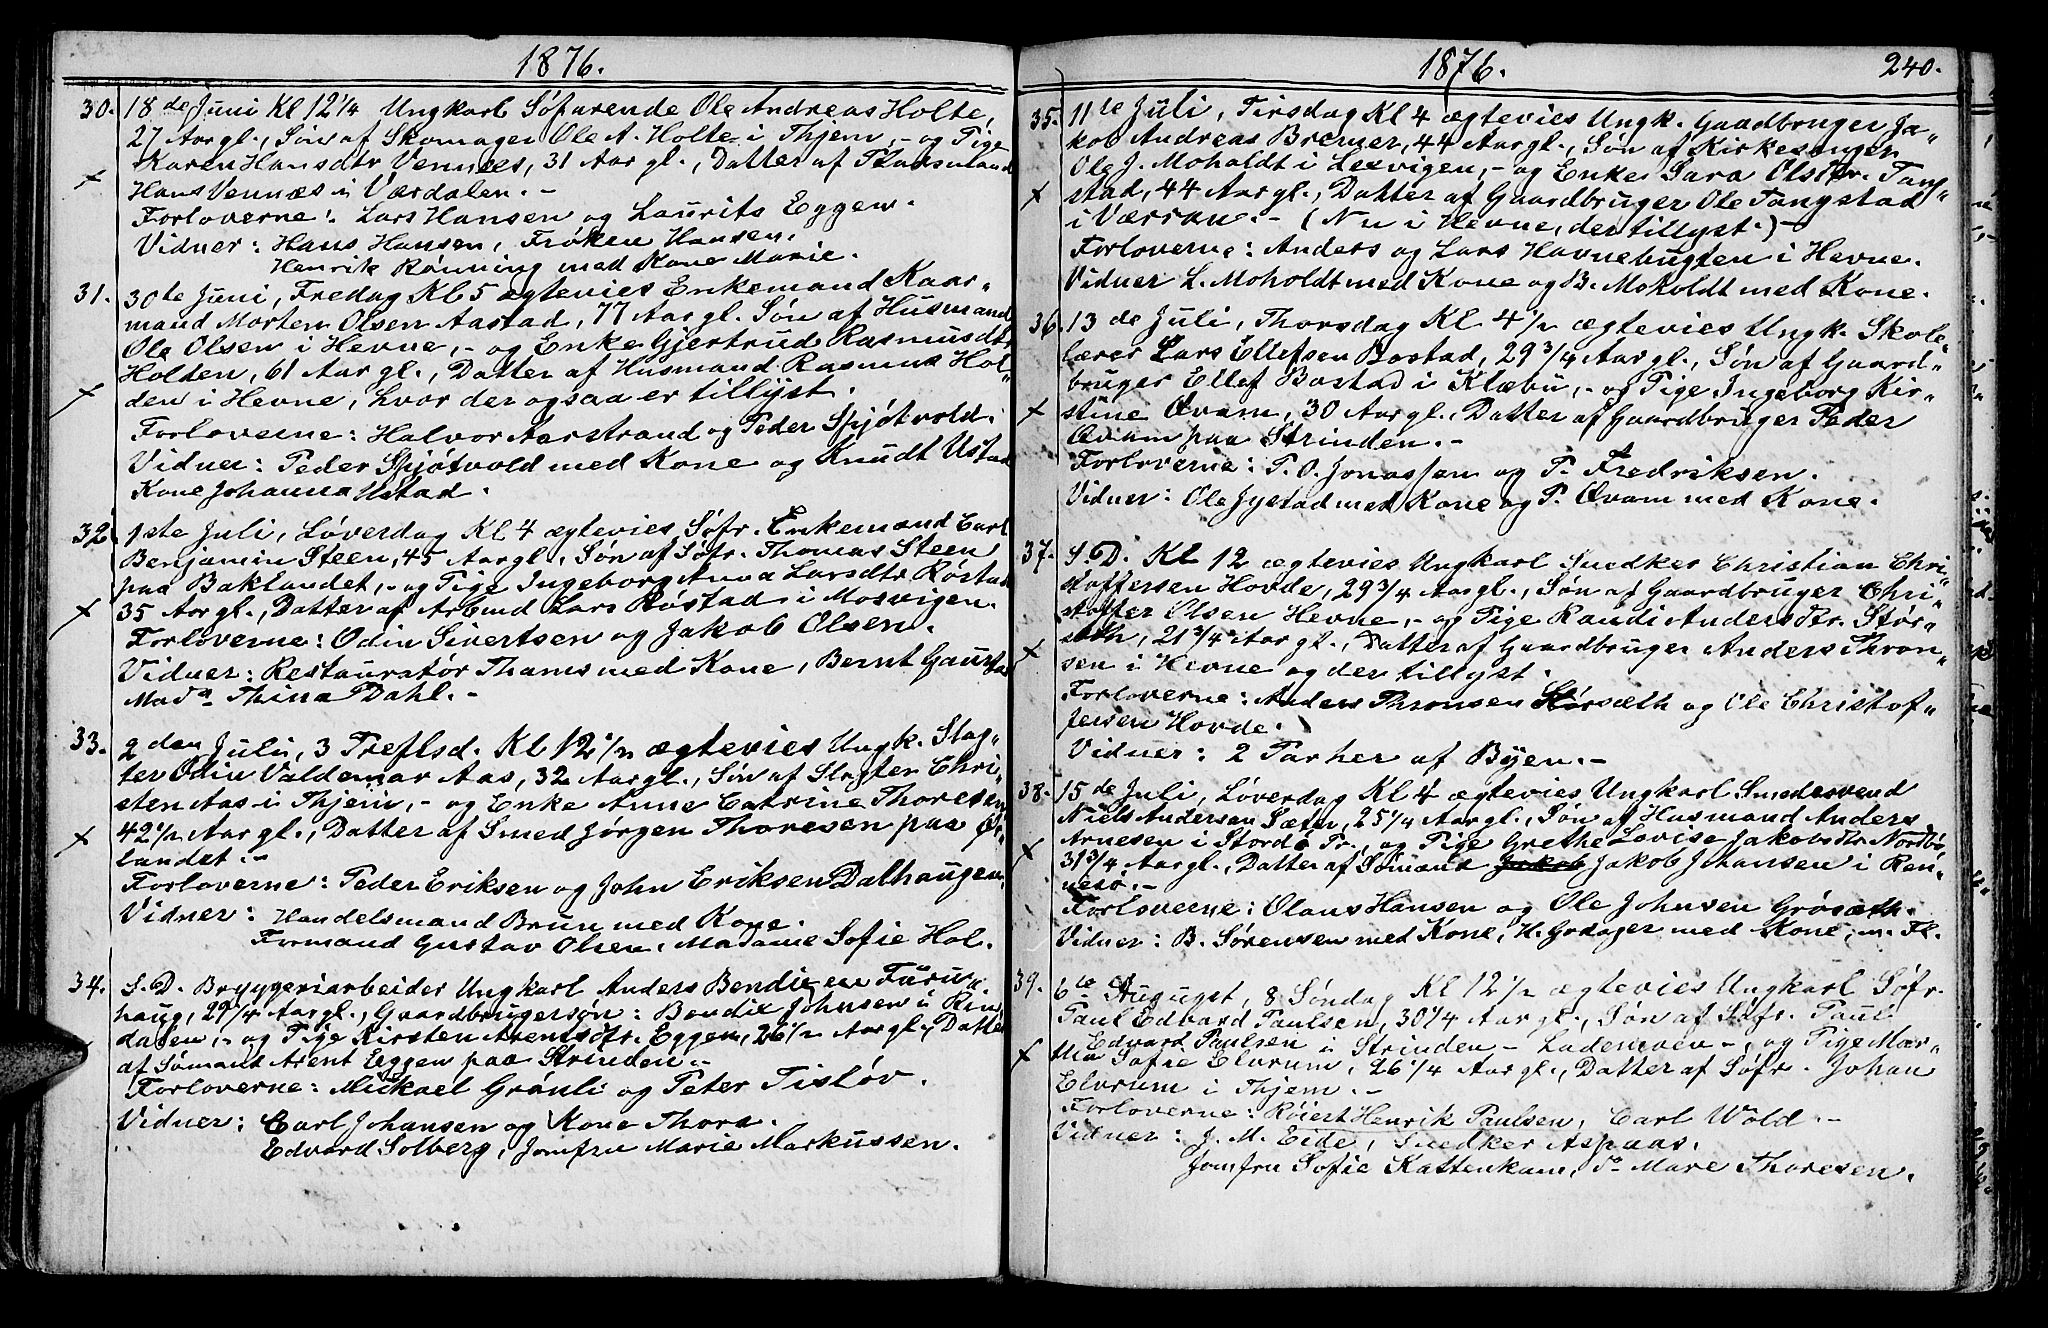 1876.
30. 18de Juni Kl 12 1/4 Ungkarl Søfarende Ole Andreas Holte,
27 Aar gl., Søn af Skomager Ole A. Holte i Thjem, og Pige
Karen Hansdtr Vennes, 31 Aar gl., Datter af
Hans Vennæs i Værdalen. -
Forloverne: Lars Hansen og Laurits Eggen.
Vidner: Hans Hansen, Frøken Hansen,
Henrik Rønning med Kone Marie.
31. 30te Juni, Fredag Kl 5 ægtevies Enkemand Kaar„
mand Morten Olsen Aastad, 77 Aar gl. Søn af Husmand
Ole Olsen i Hevne, - og Enke Gjertrud Rasmusdtr
Holten, 61 Aar gl., Datter af Husmand Rasmus Hol„
den i Hevne, hvor der ogsaa er tillyst.
Forloverne: Halvor Aarstrand og Peder Spjøtvold.
Vidner: Peder Spjøtvold med Kone og Knudt Ustad
Kone Johanna Ustad.
32. 1ste Juli, Løverdag Kl 4 ægtevies Søfr. Enkemand Carl
Benjamin Steen, 45 Aar gl., Søn af Søfr. Thomas Steen
paa Baklandet, - og Pige Ingeborg Anna Larsdtr Røstad
35 Aar gl., Datter af Arbmd Lars Røstad i Mosvigen.
Forloverne: Odin Sivertsen og Jakob Olsen.
Vidner: Restauratør Thams med Kone, Bernt Gaustad
Mada Thina Dahl. -
33. 2den Juli, 3 Treflsd. Kl 12 1/2 ægtevies Ungk. Slag„
ter Odin Valdemar Aas, 32 Aar gl., Søn af Slagter Chri„
sten Aas i Thjem, - og Enke Anne Catrine Thoresen
42 1/2 Aar gl., Datter af Smed Jørgen Thoresen paa Ør„
landet. -
Forloverne: Peder Eriksen og John Eriksen Dalhaugen,
Vidner: Handelsmand Brun med Kone.
Formand Gustav Olsen, Madame Sofie Hol.
34. S. D. Bryggeriarbeider Ungkarl Anders Bendixen Furu„
haug, 29 1/4 Aar gl., Gaardbrugersøn: Bendix Johnsen i Rin„
dalen, - og Pige Kirsten Arentsdtr. Eggen, 26 1/2 Aar gl., Datter
af Sømand Arent Eggen paa Strinden. -
Forloverne: Mickael Grønli og Peter Tisløv.
Vidner: Carl Johansen og Kone Thora.
Edvard Solberg, Jomfru Marie Markussen.
1876. 240.
35. 11te Juli, Tirsdag Kl 4 ægtevies Ungk. Gaardbruger Ja„
kob Andreas Bremer, 44 Aar gl., Søn af Kirkesanger
Ole J. Moholdt i Lexvigen, - og Enke Sara Olsdtr. Tang„
stad, 44 Aar gl., Datter af Gaardbruger Ole Tangstad
i Værran. - (Nu i Hevne, der tillyst.) -
Forloverne: Anders og Lars Havnebugten i Hevne.
Vidner L. Moholdt med Kone og B. Moholdt med Kone.
36. 13de Juli, Thorsdag Kl 4 1/2 ægtevies Ungk. Skole„
lærer Lars Ellefsen Bostad, 29 3/4 Aar gl., Søn af Gaard„
bruger Ellef Bostad i Klæbu, - og Pige Ingeborg Kir„
stine Qvam, 30 Aar gl., Datter af Gaardbruger Peder
Qvam paa Strinden. -
Forloverne: P. O. Jonassen og P. Fredriksen.
Vidner: Ole Jystad med Kone og P. Qvam med Kone.
37. S. D. Kl 12 ægtevies Ungkarl Snedker Christian Chri„
stoffersen Hovde, 29 3/4 Aar gl., Søn af Gaardbruger Chri„
stoffer Olsen Hevne, - og Pige Randi Andersdtr. Stør„
seth, 21 3/4 Aar gl., Datter af Gaardbruger Anders Thron„
sen i Hevne og der tillyst.
Forloverne: Anders Thronsen Størsæth og Ole Christof„
fersen Hovde.
Vidner: 2 Parher af Byen. -
38. 15de Juli, Løverdag Kl 4 ægtevies Ungkarl Smedesvend
Niels Andersen Sæter, 25 1/4 Aar gl., Søn af Husmand Anders
Arnesen i Stordø Pr., og Pige Grethe Lovise Jakobsdtr Nordbø,
31 3/4 Aar gl., Datter af Sømand Jakob Jakob Johansen i Ren„
nesø. -
Forloverne: Olaus Hansen og Ole Johnsen Grøsæth.
Vidner: B. Sørensen med Kone, H. Godager med Kone, m. Fl.
39. 6te August, 8 Søndag Kl 12 1/2 ægtevies Ungkarl Søfr.
Paul Edvard Paulsen, 30 1/4 Aar gl., Søn af Søfr. Paul
Edvard Paulsen i Strinden - Lademoen -, og Pige Mar„
tha Sofie Elvrum, 26 1/4 Aar gl., Datter af Søfr. Johan
Elvrum i Thjem. -
Forloverne: Røiert Henrik Paulsen, Carl Wold. -
Vidner: J. M. Eide, Snedker Aspaas.
Jomfru Sofie Kattenkam, Do Mare Thoresen.